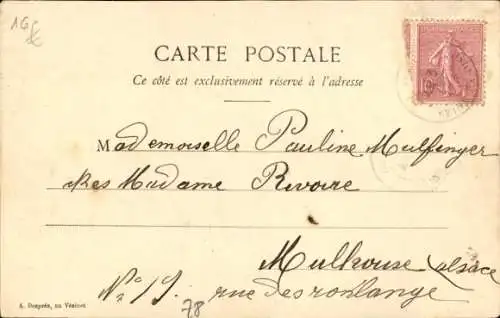 16 €
CARTE POSTALE
Ce côté est exclusivement réservé à l'adresse
Mademoiselle Pauline Mulfinger
chez Madame Rivoire
Mulhouse Alsace
No 15. rue des
78
A. Desprée, au Vésinet